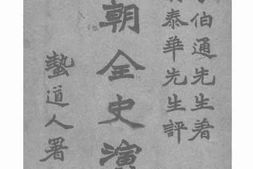 伯通先生着
泰華先生評
朝全史演
蟄道人署